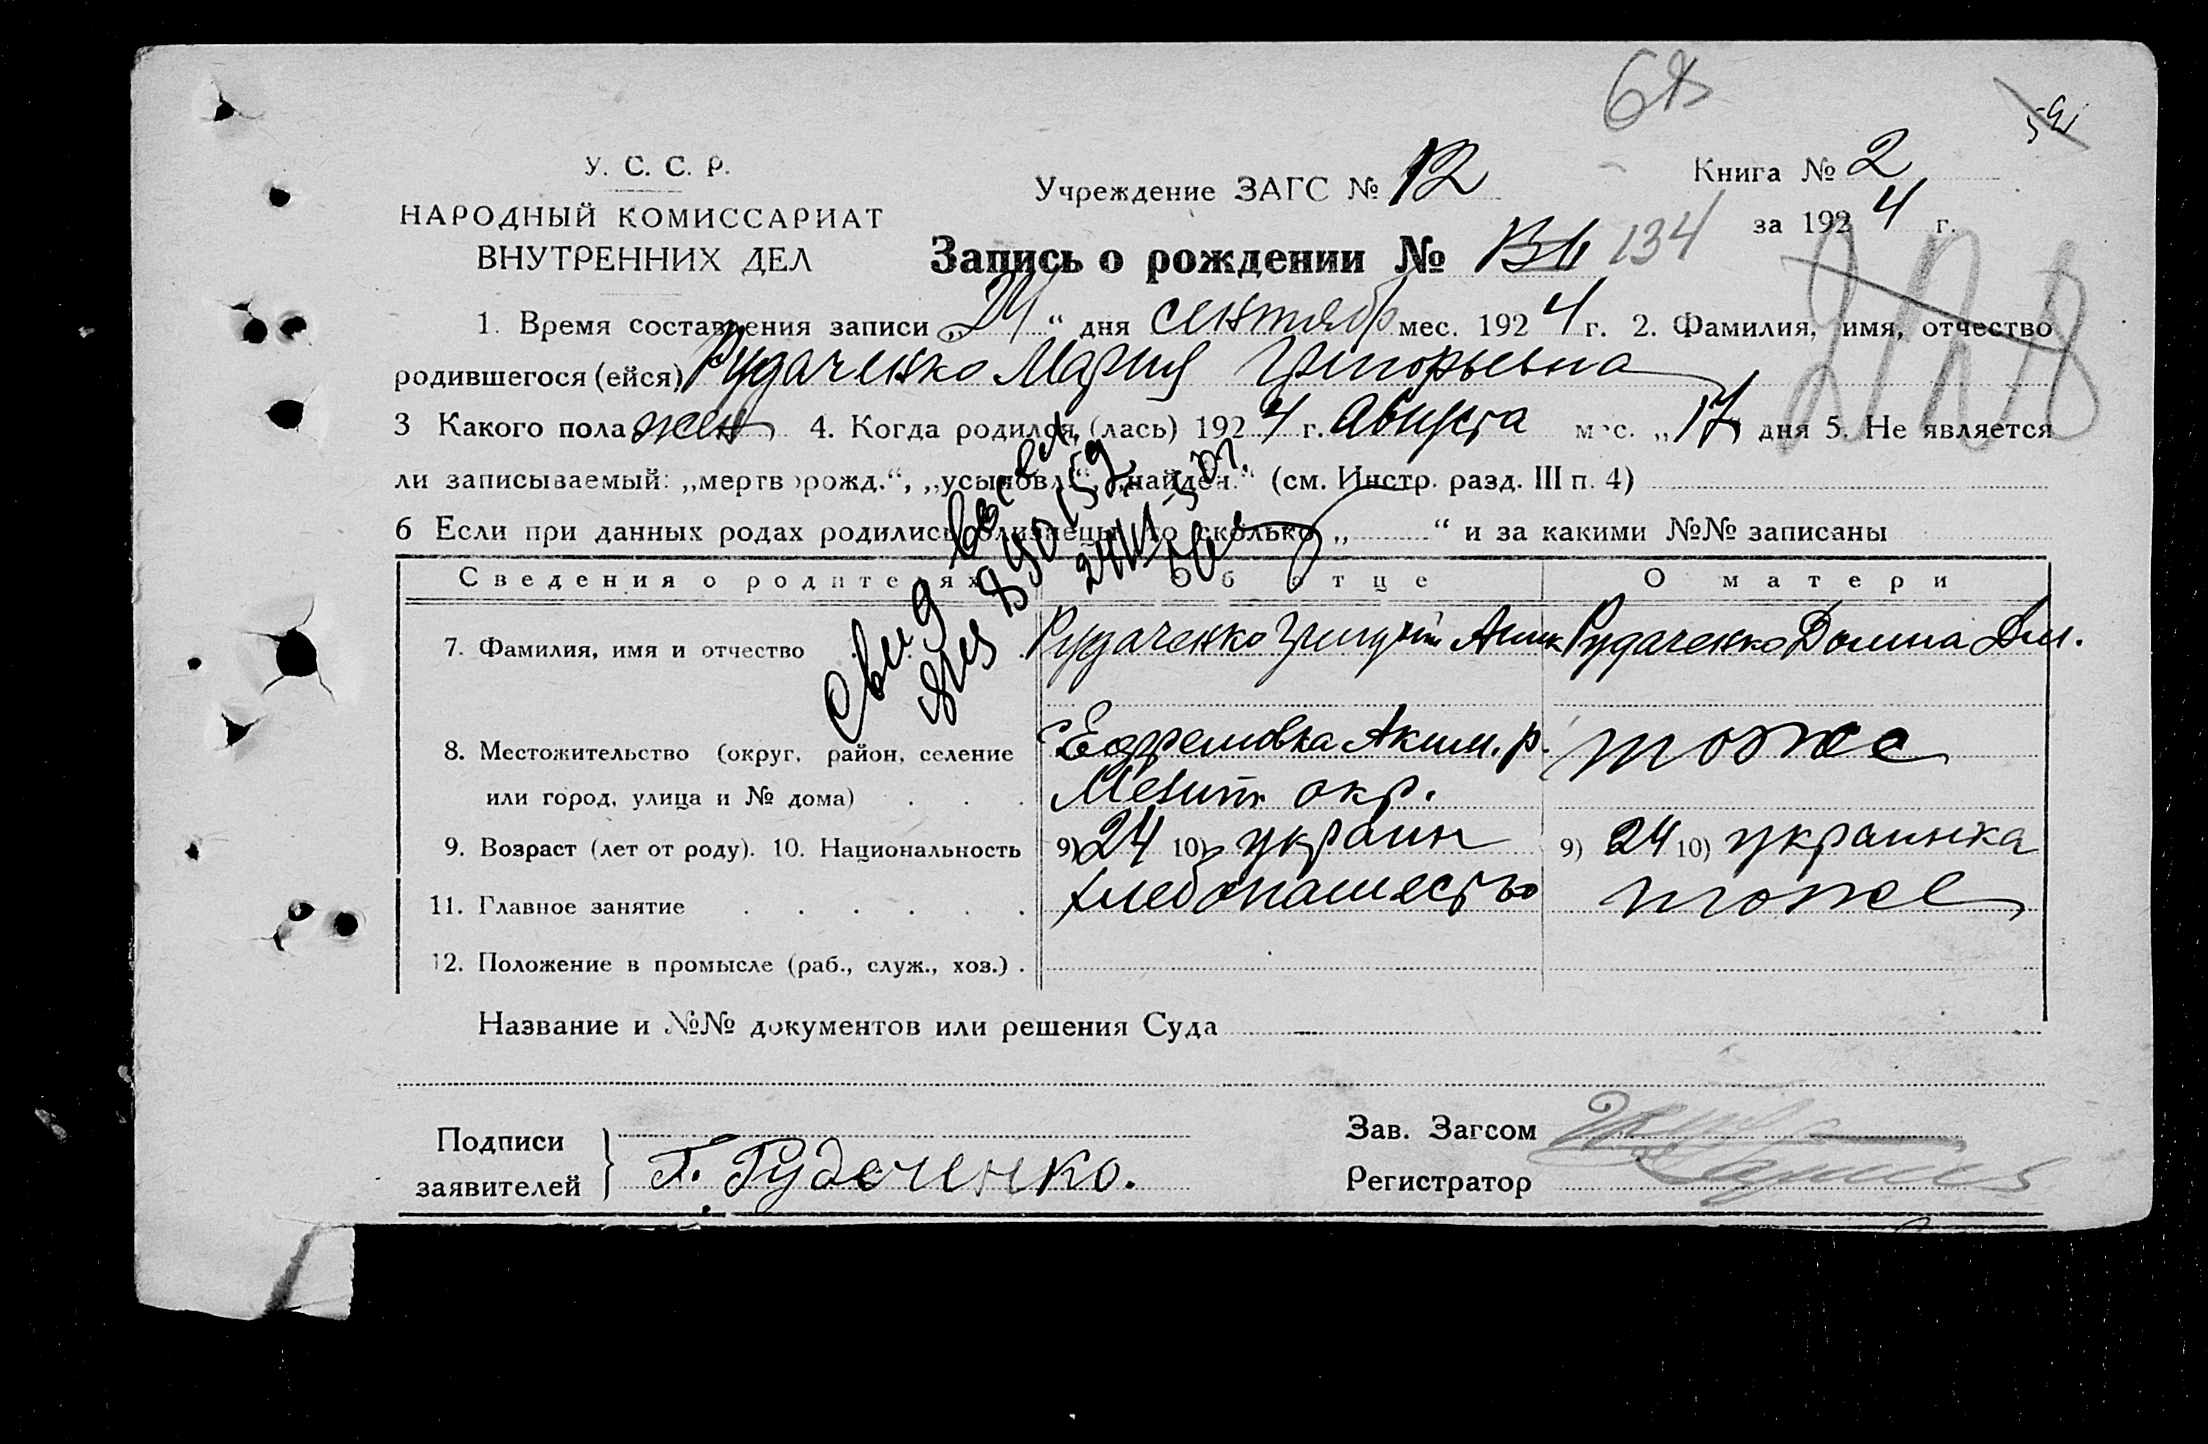 У. С. С. Р.
НАРОДНЫЙ КОМИССАРИАТ
ВНУТРЕННИХ ДЕЛ
Учреждение ЗАГС № 12
Книга № 2
за 1924 г.
Запись о рождении № 134
1. Время составления записи „24“ дня сентябр мес. 1924 г. 2. Фамилия, имя, отчество
родившегося (ейся) Рудаченко Мария Григорьевна
3 Какого пола жен 4. Когда родился (лась) 1924 г. Августа мес. „17 дня 5. Не является
ли записываемый: „мертворожд.“, „усыновл.“, „найден.“ (см. Инстр. разд. III п. 4)
6 Если при данных родах родились близнецы, то сколько „ “ и за какими №№ записаны
Сведения о родителях Об отце О матери
7. Фамилия, имя и отчество Рудаченко Рудаченко Домна
8. Местожительство (округ, район, селение с Ефремовка Аким. р. тоже
или город, улица и № дома) Мелит окр.
9. Возраст (лет от роду). 10. Национальность 9) 24 10) украин 9) 24 10) украинка
11. Главное занятие хлебопашество тоже
12. Положение в промысле (раб., служ., хоз.)
Название и №№ документов или решения Суда
Подписи
заявителей Г. Рудаченко.
Зав. Загсом
Регистратор